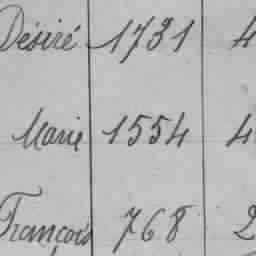 Désiré 1731 4
Marie 1554 4
François 768 2